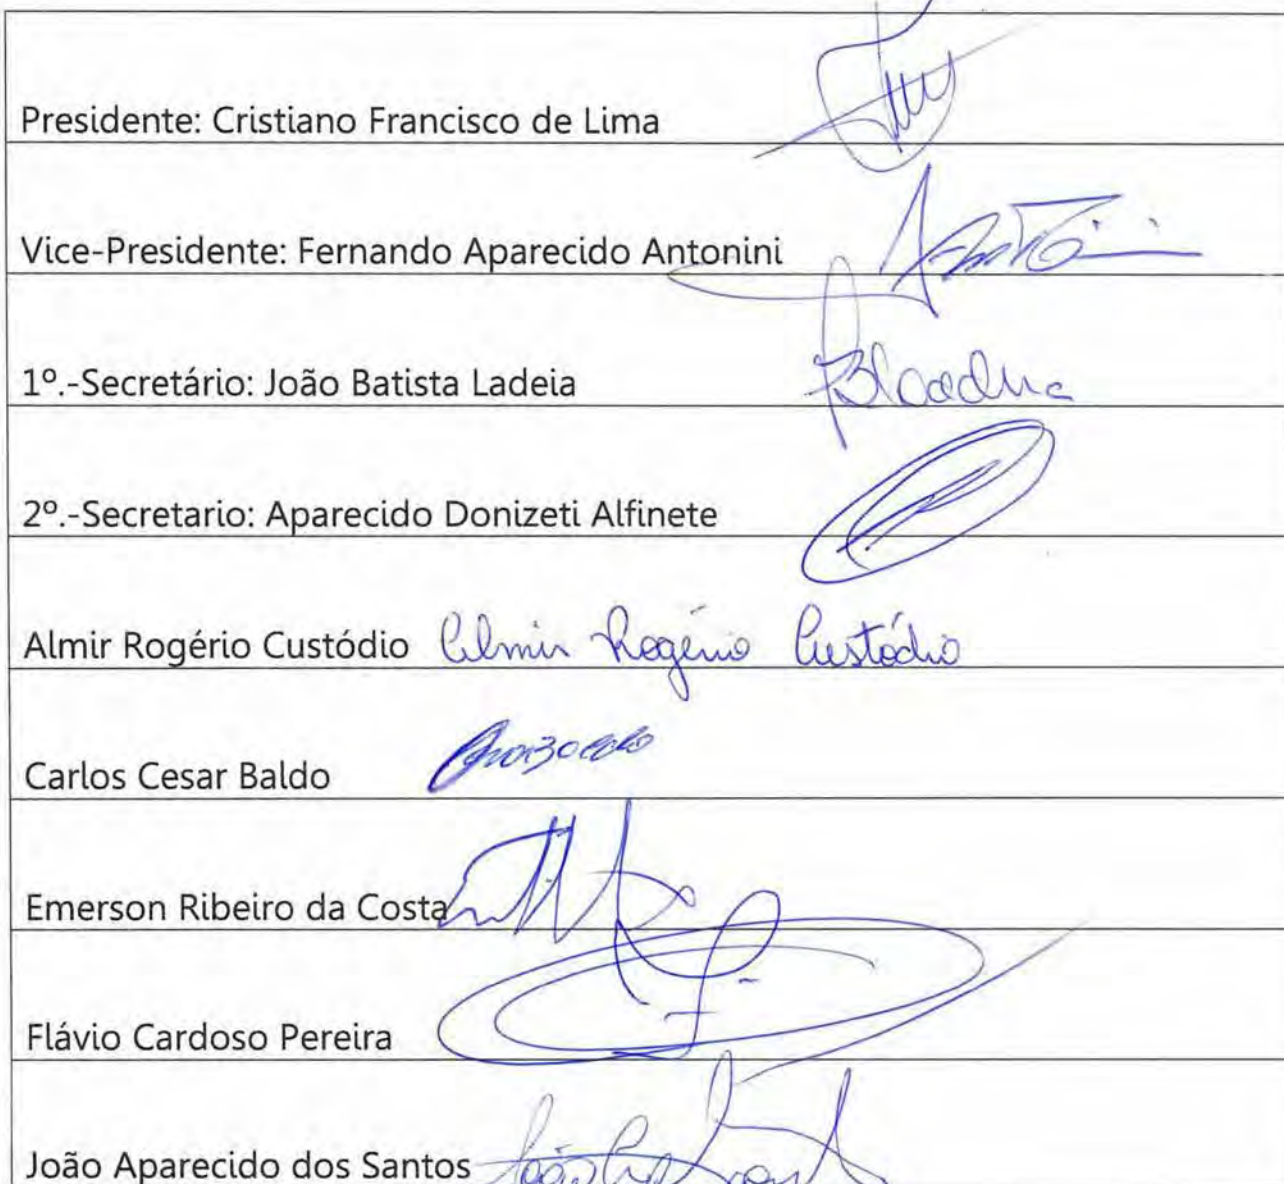 Presidente: Cristiano Francisco de Lima
Vice-Presidente: Fernando Aparecido Antonini
1º.-Secretário: João Batista Ladeia
2º.-Secretario: Aparecido Donizeti Alfinete
Almir Rogério Custódio Almir Rogério Custódio
Carlos Cesar Baldo
Emerson Ribeiro da Costa
Flávio Cardoso Pereira
João Aparecido dos Santos